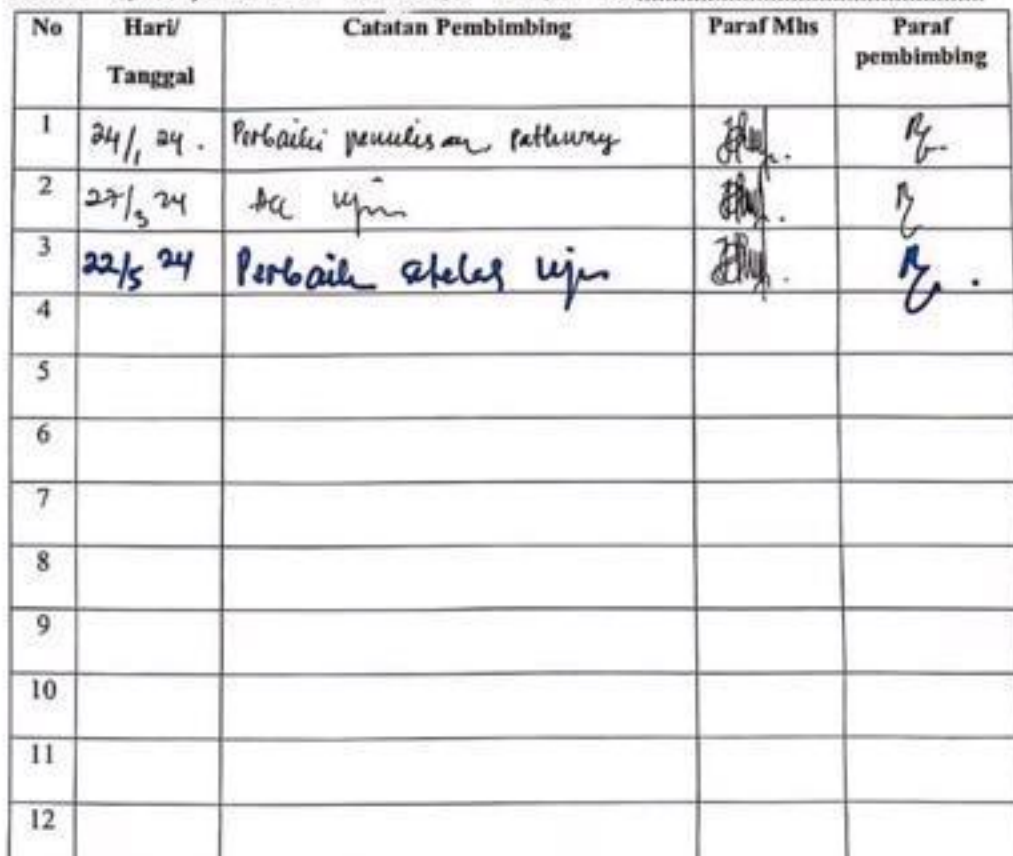 No Hari/ Catatan Pembimbing Paraf Mhs Paraf
Tanggal pembimbing
1 24/1 24. Perbaiki penulisan pathway
2 27/3 24 Acc ujin
3 22/5 24 Perbaik setelah ujin
4
5
6
7
8
9
10
11
12